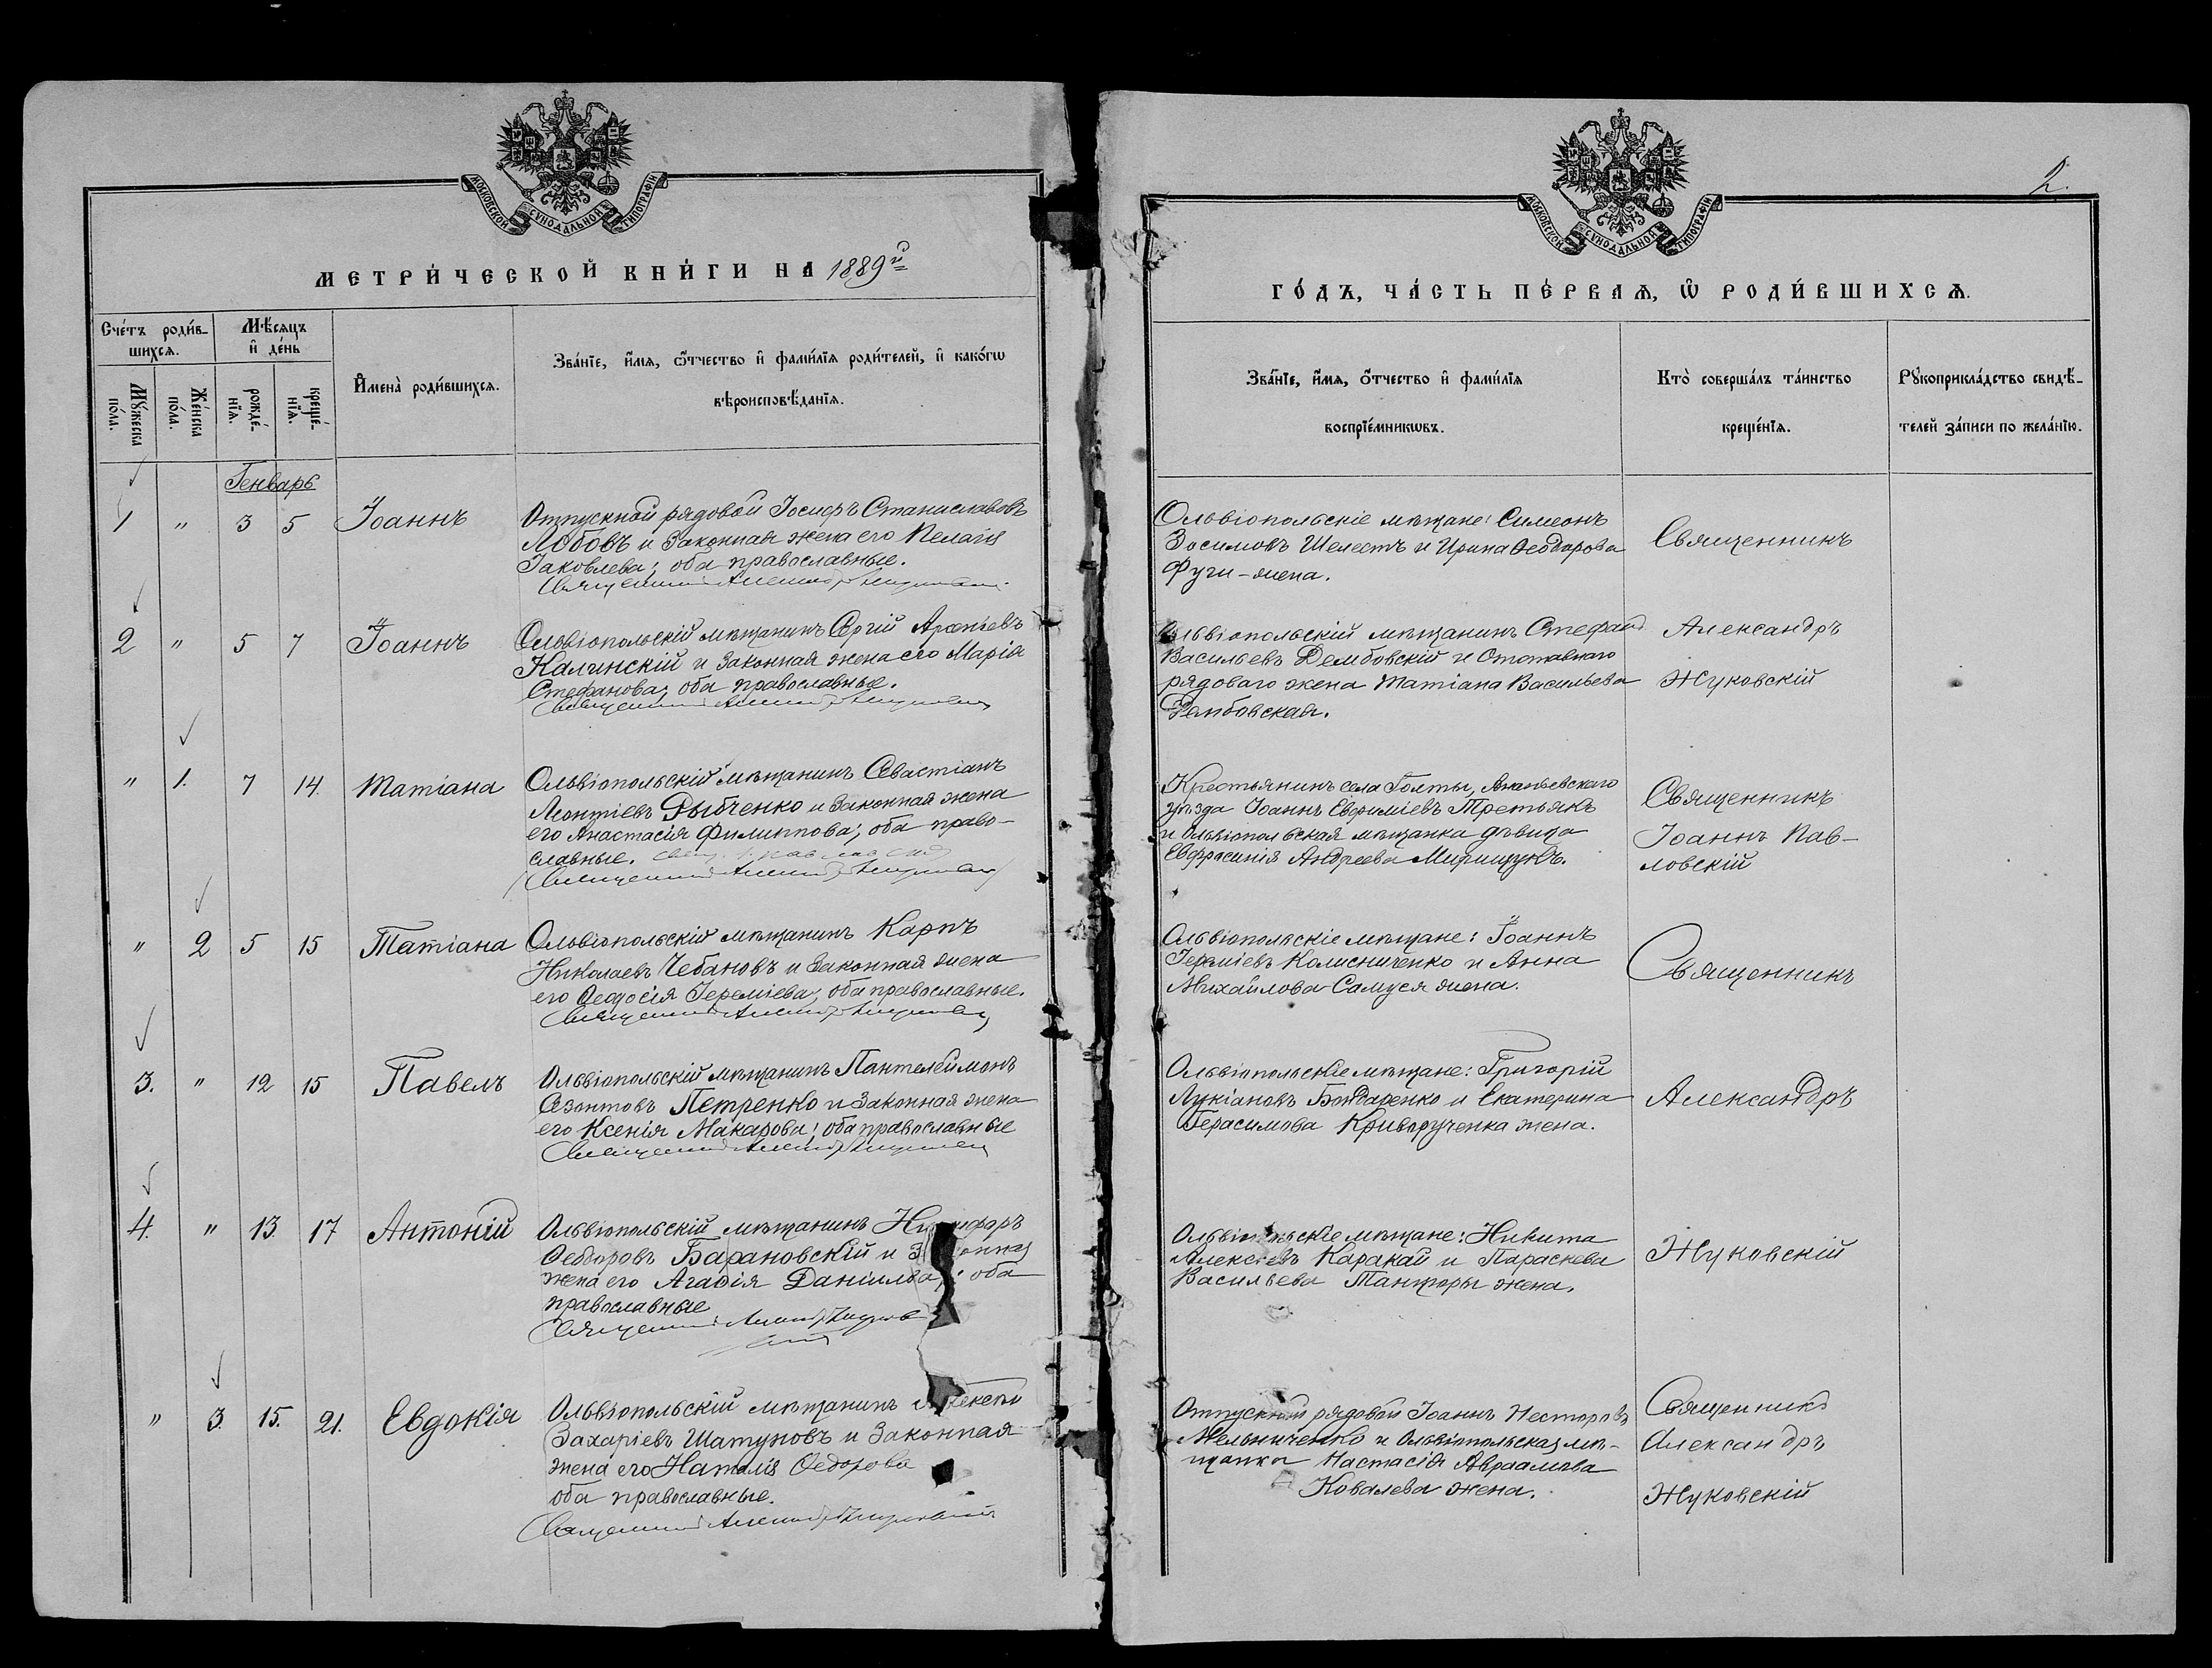 МОСКОВСКОЙ СУНОДАЛЬНОЙ ТИПОГРАФІИ
МЕТРИ́ЧЕСКОЙ КНИ́ГИ НА 1889й
Сче́тъ роди́в-
шихсѧ.
Мѣ́сѧцъ
и҆ де́нь
Мꙋ́жеска
по́ла.
Же́нска
по́ла.
рожде́-
нїѧ.
креще́-
нїѧ.
И҆мена̀ роди́вшихсѧ.
Зва́нїе, и҆́мѧ, ѻ҆́тчество и҆ фами́лїѧ роди́телей, и҆ како́гѡ
вѣроисповѣ́данїѧ.
Генварь
1 " 3 5 Іоаннъ
Отпускной рядовой Іосифъ Станиславовъ
Лобовъ и законная жена его Пелагія
Іаковлева; оба православные.
Священникъ Александръ Жуковскій
2 " 5 7 Іоаннъ
Ольвіопольскій мѣщанинъ Сергій Арсеньевъ
Калинскій и законная жена его Марія
Стефанова; оба православные.
Священникъ Александръ Жуковскій
" 1. 7 14. Татіана
Ольвіопольскій мѣщанинъ Севастіанъ
Леонтіевъ Рыбченко и законная жена
его Анастасія Филиппова; оба право-
славные.
Священникъ Александръ Жуковскій
" 2 5 15 Татіана
Ольвіопольскій мѣщанинъ Карпъ
Николаевъ Чебановъ и законная жена
его Ѳеодосія Іереміева; оба православные.
Священникъ Александръ Жуковскій
3. " 12 15 Павелъ
Ольвіопольскій мѣщанинъ Пантелеймонъ
Созонтовъ Петренко и законная жена
его Ксенія Макарова; оба православные
Священникъ Александръ Жуковскій
4. " 13. 17 Антоній
Ольвіопольскій мѣщанинъ
Ѳеодоровъ Барановскій и
жена его Агафія Даніилова; оба
православные
Священникъ Александръ Жуков
скій
" 3. 15. 21. Евдокія
Ольвіопольскій мѣщанинъ
Захаріевъ Шатуновъ и законная
жена его Наталія Ѳедорова
оба православные.
Священникъ Александръ Жуковскій
МОСКОВСКОЙ СУНОДАЛЬНОЙ ТИПОГРАФІИ
2.
ГО́ДЪ, ЧА́СТЬ ПЕ́РВАѦ, Ѽ РОДИ́ВШИХСѦ.
Зва́нїе, и҆́мѧ, ѻ҆́тчество и҆ фами́лїѧ
воспрїе́мникѡвъ.
Кто̀ соверша́лъ та́инство
креще́нїѧ.
Рꙋкоприкла́дство свидѣ́-
телей за́писи по жела́нїю.
Ольвіопольскіе мѣщане: Симеонъ
Зосимовъ Шелестъ и Ирина Ѳеодорова
Фуги - жена.
Священникъ
Ольвіопольскій мѣщанинъ Стефанъ
Васильевъ Дембовскій и Отставнаго
рядоваго жена Татіана Васильева
Дембовская.
Александръ
Жуковскій
Крестьянинъ села Голты, Ананьевскаго
уѣзда Іоаннъ Евфиміевъ Третьякъ
и Ольвіопольская мѣщанка дѣвица
Евфросинія Андреева
Священникъ
Іоаннъ Пав-
ловскій
Ольвіопольскіе мѣщане: Іоаннъ
Іереміевъ Колисниченко и Анна
Михайлова Самуся жена.
Священникъ
Ольвіопольскіе мѣщане: Григорій
Лукіановъ Бондаренко и Екатерина
Герасимова Криворученка жена.
Александръ
Ольвіопольскіе мѣщане: Никита
Алексіевъ Каракай и Параскева
Васильева Танцюры жена.
Жуковскій
Отпускной рядовой Іоаннъ Несторовъ
Мельниченко и Ольвіопольская мѣ-
щанка Настасія Авраамова
Ковалева жена.
Священникъ
Александръ
Жуковскій